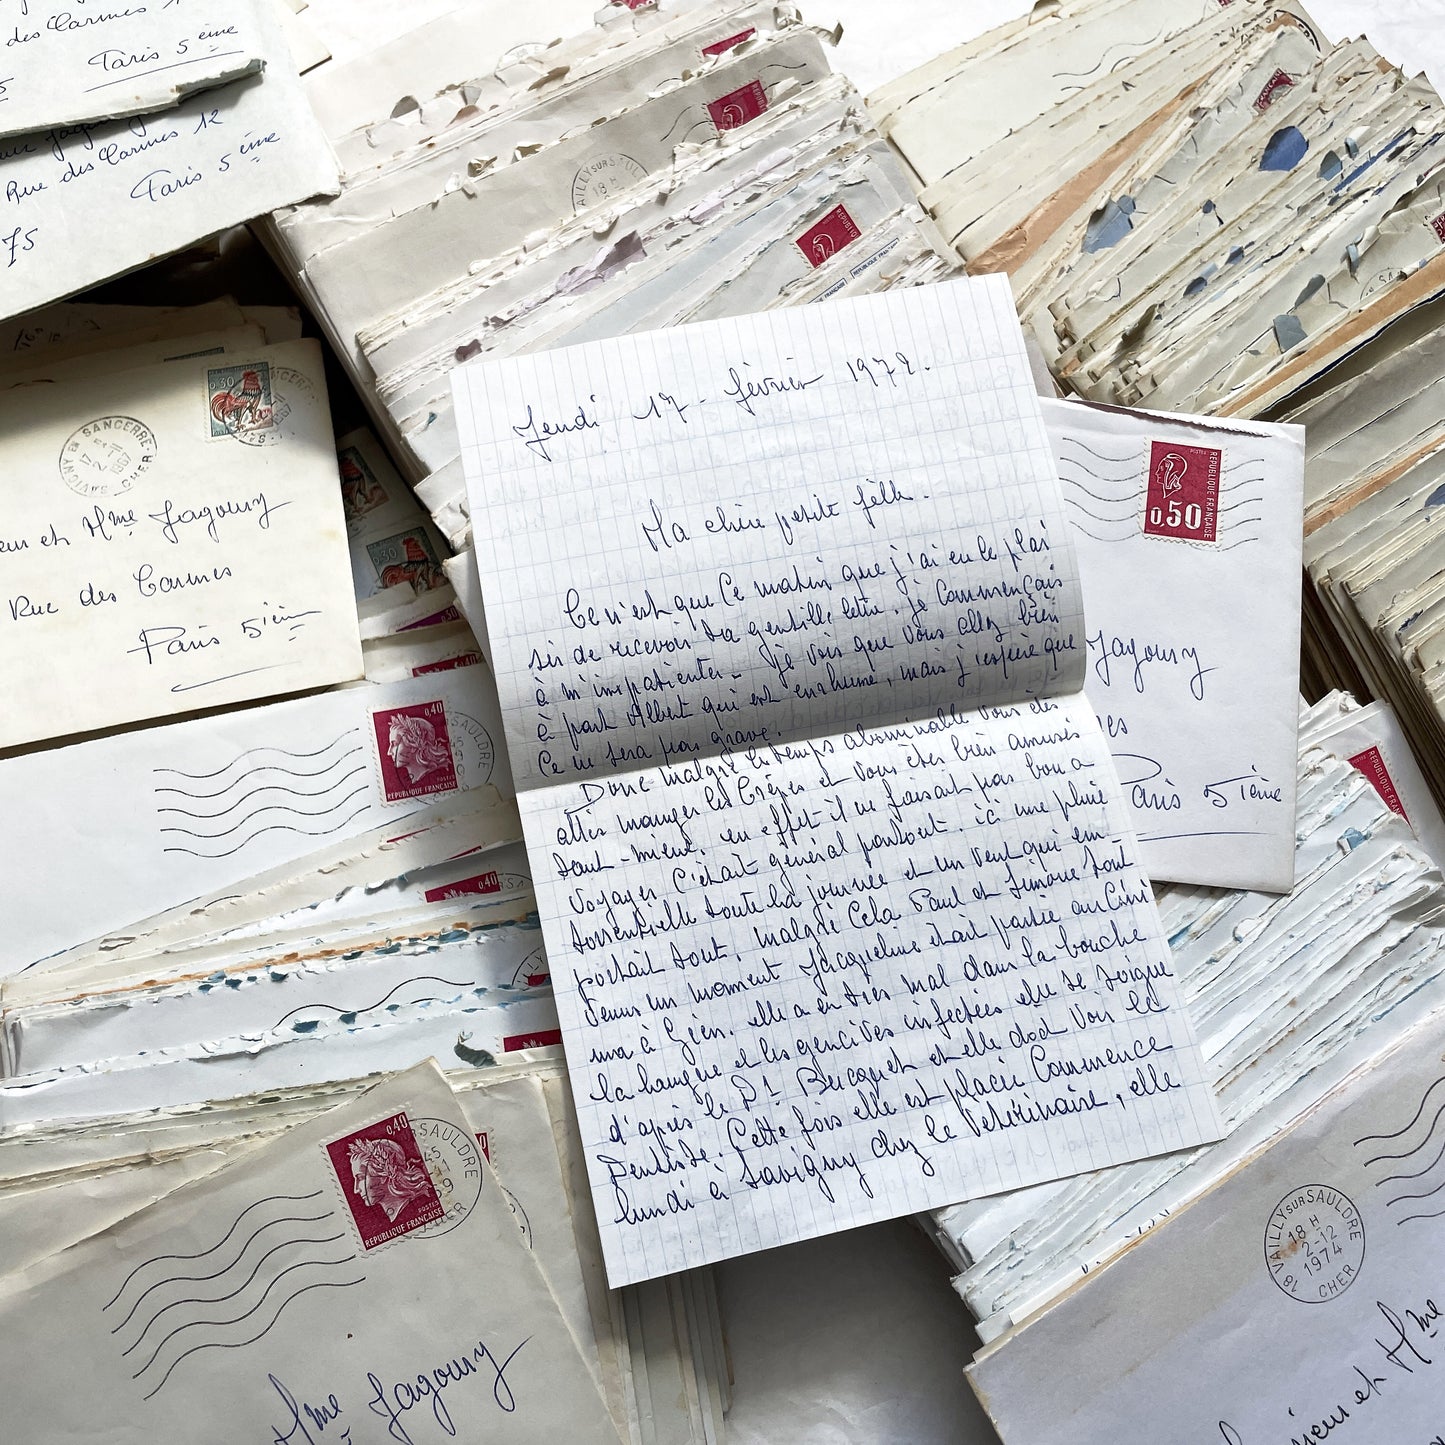 des Carmes 12
Paris 5 ème
Rue des Carmes 12
Paris 5 ème
75
SAVIGNY EN SANCERRE
17
2
1967
CHER
0,30
SANCERRE
1967
et Mme Jagoury
Rue des Carmes
Paris 5 ième
0,30
0,40
POSTES
REPUBLIQUE FRANÇAISE
SAULDRE
0,40
0,40
POSTES
REPUBLIQUE FRANÇAISE
SAULDRE
CHER
Mme Jagoury
VAILLY SUR SAUL
18 H
REPUBLIQUE FRANÇAISE
REPUBLIQUE FRAN
Jeudi 17 - février 1972.
Ma chère petite fille.
Ce n'est que Ce matin que j'ai eu le plai
sir de recevoir ta gentille lettre. je Commençais
à m'impatienter - je vois que vous allez bien
à part Albert qui est enrhumé, mais j'espère que
Ce ne sera pas grave.
Donc malgré le temps abominable vous êtes
allés manger les Crêpes et vous êtes bien amusés
tant-mieux, en effet il ne faisait pas bon a
voyager C'était général partout. ici une pluie
torrentielle toute la journée et un vent qui em
portait tout, malgré Cela Paul et Simone sont
venus un moment Jacqueline était partie au Ciné
ma à Gien. elle a eu très mal dans la bouche
la langue et les gencives infectées elle se soigne
d'après le Dr Bucquet et elle doit voir le
Dentiste. Cette fois elle est placée Commence
lundi à Savigny chez le Vétérinaire, elle
POSTES
REPUBLIQUE FRANÇAISE
0,50
Jagoury
Paris 5 ième
18 VAILLY SUR SAULDRE
18 H
2-12
1974
CHER
Monsieur et Mme